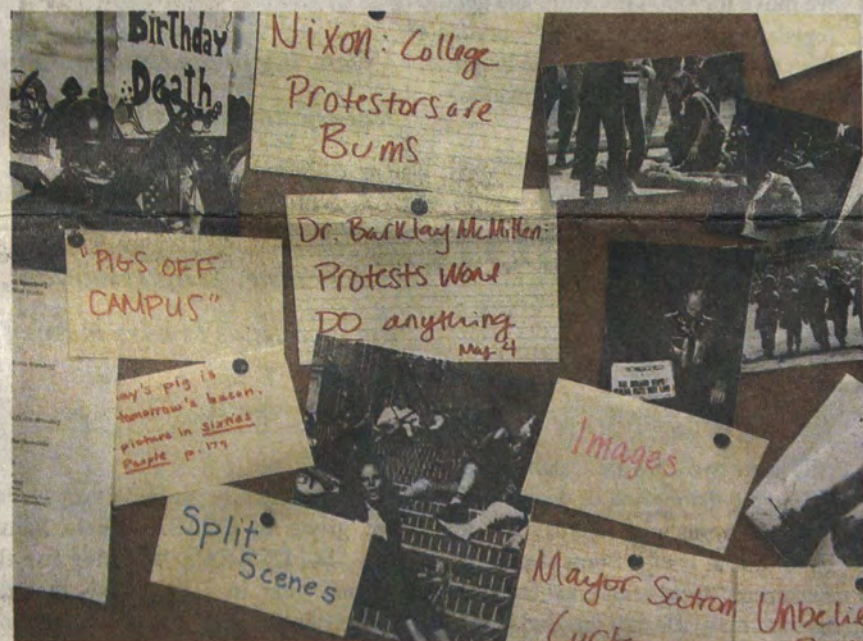 Birthday
Death
Nixon: College
Protestors are
Bums
"PIGS OFF
CAMPUS"
Dr. Barklay McMillen:
Protests Wont
DO anything
May 4
pig is
tomorrow's bacon.
picture in Sixties
People p. 179
Images
Split
Scenes
Mayor Satrom
Curfew